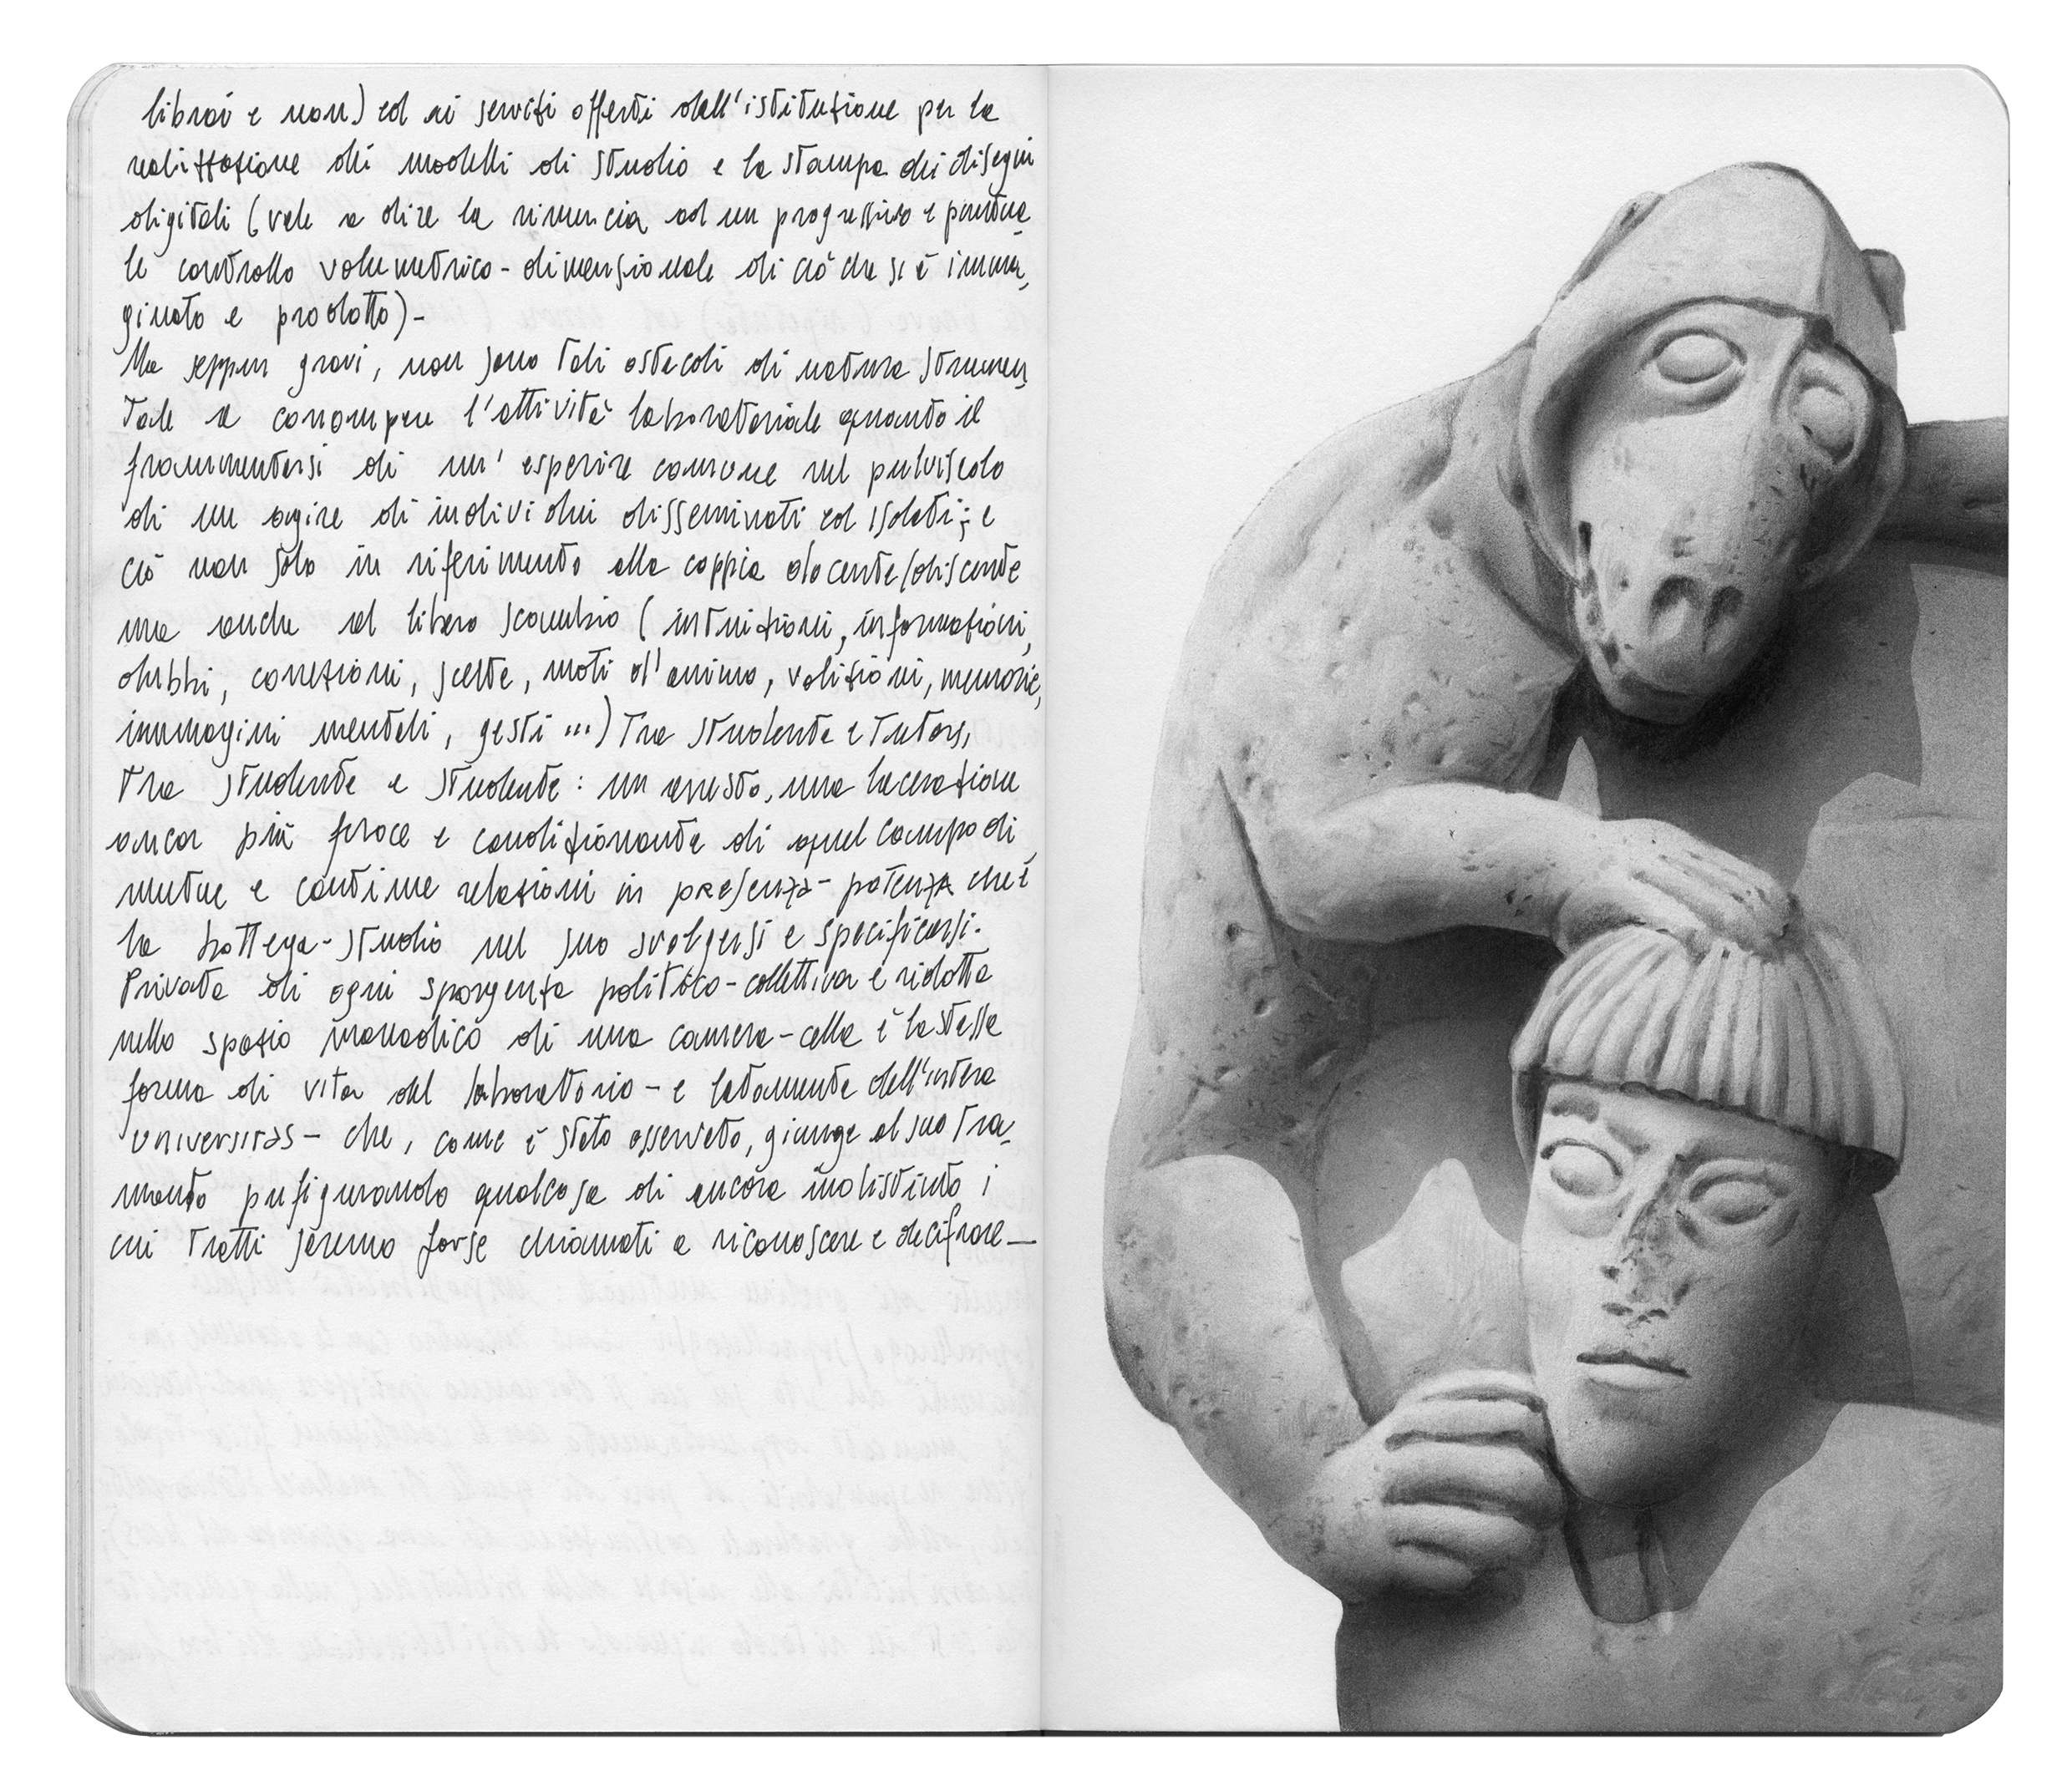 librai e non) ed ai servizi offerti dall'istituzione per la
realizzazione dei modelli di studio e la stampa dei disegni
digitali (vale a dire la rinuncia ad un progressivo e puntua-
le controllo volumetrico-dimensionale di ciò che si è imma-
ginato e prodotto)-
Ma seppur gravi, non sono tali ostacoli di natura strumen-
tale a corrompere l'attività laboratoriale quanto il
frammentarsi di un' esperire comune nel pulviscolo
di un agire di individui disseminati ed isolati; e
ciò non solo in riferimento alla coppia docente/discente
ma anche al libero scambio (intuizioni, informazioni,
dubbi, correzioni, scelte, moti d'animo, volizioni, memorie,
immagini mentali, gesti ...) tra studente e tutors,
tra studente e studente: un arresto, una lacerazione
ancor più feroce e condizionante di quel campo di
mutue e continue relazioni in presenza-potenza che è
la bottega-studio nel suo svolgersi e specificarsi.
Privata di ogni sporgenza politico-collettiva e ridotta
nello spazio monadico di una camera-cella è la stessa
forma di vita del laboratorio - e latamente dell'intera
universitas - che, come è stato osservato, giunge al suo tra-
monto prefigurando qualcosa di ancora indistinto i
cui tratti saremo forse chiamati a riconoscere e decifrare-